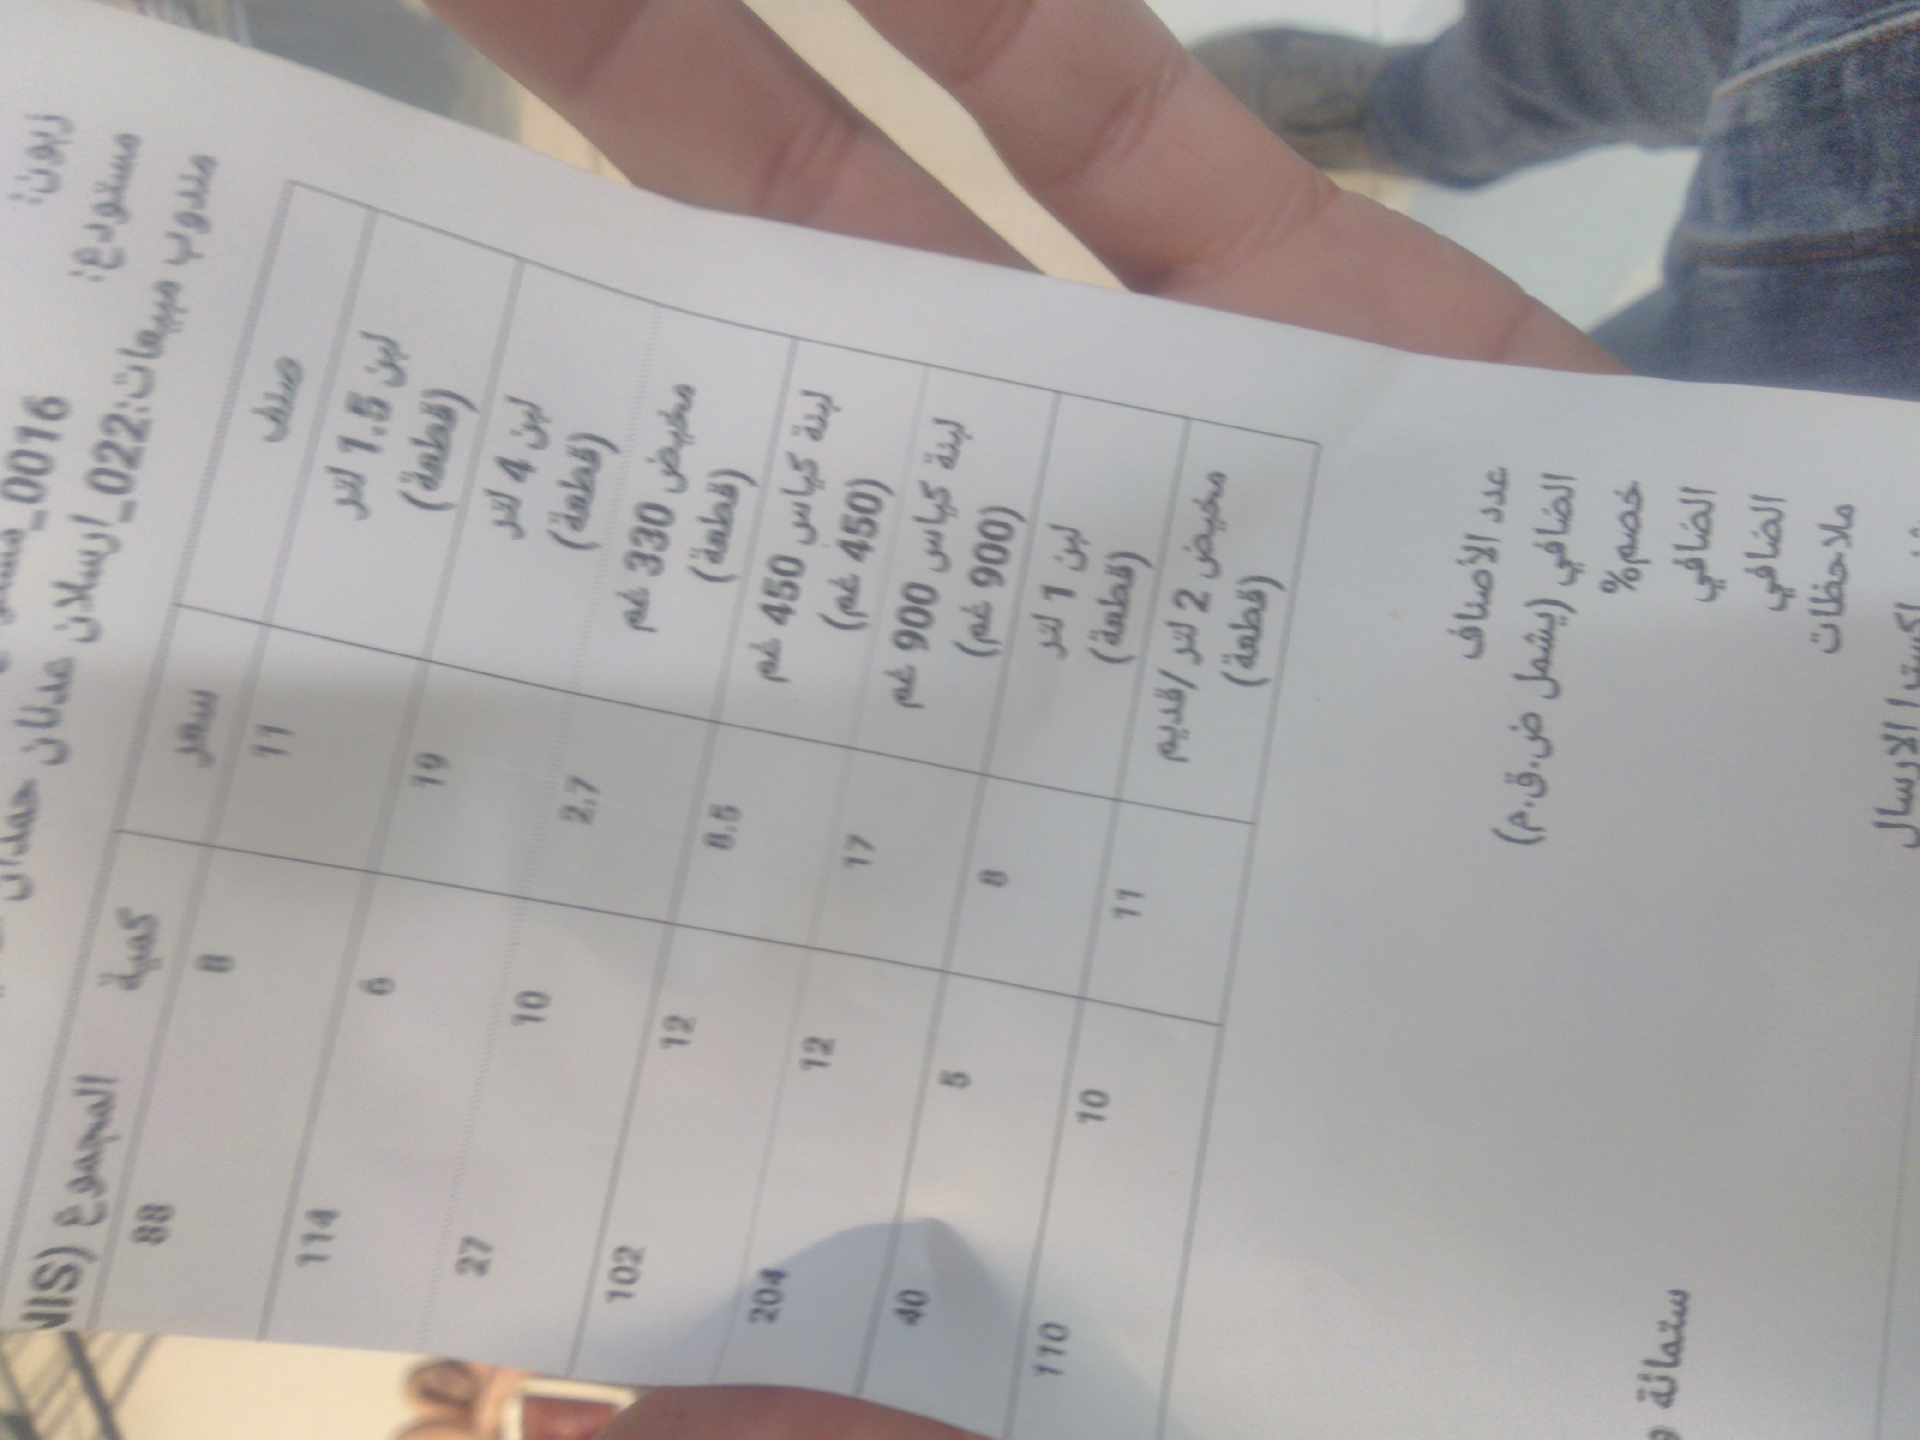 زبون:
مستودع: 0016_
مندوب مبيعات:022_ارسلان عدنان حمدان
صنف سعر كمية المجموع (NIS
لبن 1.5 لتر 11 8 88
(قطعة)
لبن 4 لتر 19 6 114
(قطعة)
مخيض 330 غم 2.7 10 27
(قطعة)
لبنة كياس 450 غم 8.5 12 102
(450 غم)
لبنة كياس 900 غم 17 12 204
(900 غم)
لبن 1 لتر 8 5 40
(قطعة)
مخيض 2 لتر /قديم 11 10 110
(قطعة)
عدد الأصناف
الصافي (يشمل ض.ق.م)
خصم%
الصافي
ستمائة و
الصافي
ملاحظات
الارسال